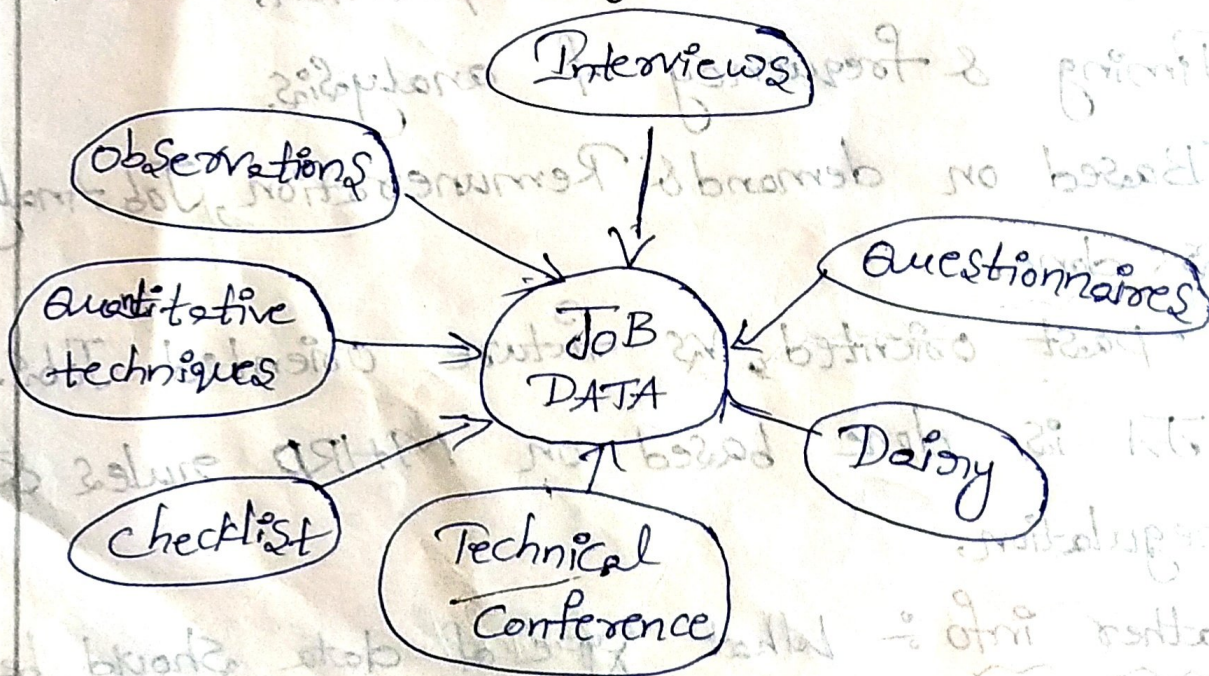 Interviews
Observations
Questionnaires
Quantitative
techniques
JOB
DATA
Dairy
Checklist
Technical
Conference